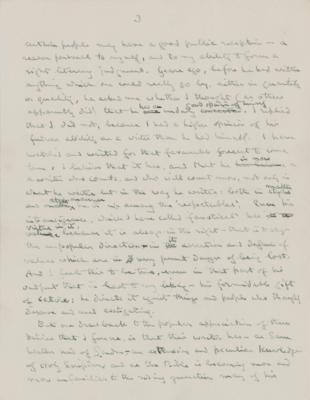 3
certain people may have a good public reception — a
reason personal to myself, and to my ability to form a
right literary judgment. Years ago, before he had written
anything which one could really go by, either in quantity
or quality, he asked me whether I thought (as others
apparently did) that he had too good opinion of himself
that I did not, because I had a higher opinion of his
future ability as a writer than he had himself. I have
watched and waited for that favourable forecast to come
true. I believe that it has, and that he is now
a writer who counts, and who will count more, not only in
what he writes but in the way he writes: both in
matter
style he is among the 'respectables'. Even his
which I have called 'fanatical' has
virtue in it,
because it is always in the right — that is to say
the unpopular direction — in the assertion and defence of
values which are in very great danger of being lost.
And I feel this to be true, even in that part of his
output that is least to my liking — his formidable gift
of satire: he directs it against things and people who
deserve and need castigating.
But one drawback to the popular appreciation of these
stories that I foresee, is that their writer has — as
had — an extensive and peculiar knowledge
of Holy Scripture, and as the Bible is becoming more and
more unfamiliar to the rising generation many of his